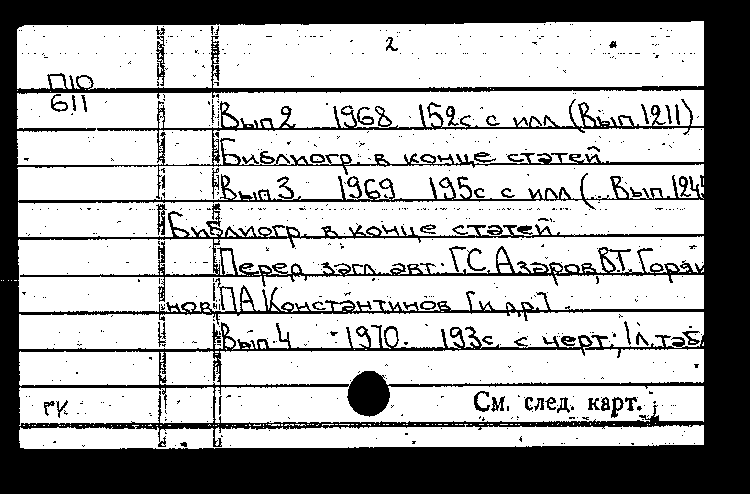 2
П10
611
Вып.2 1968 152с. с илл (Вып.1211)
Библиогр. в конце статей.
Вып.3. 1969 195с с илл (... Вып.1245
Библиогр. в конце статей.
Перед загл. авт.: Г.С. Азаров, В.Т. Горяи
нов П.А. Константинов [и др.]
Вып.4 1970. 193с. с черт.; 1л. табл
См. след. карт.